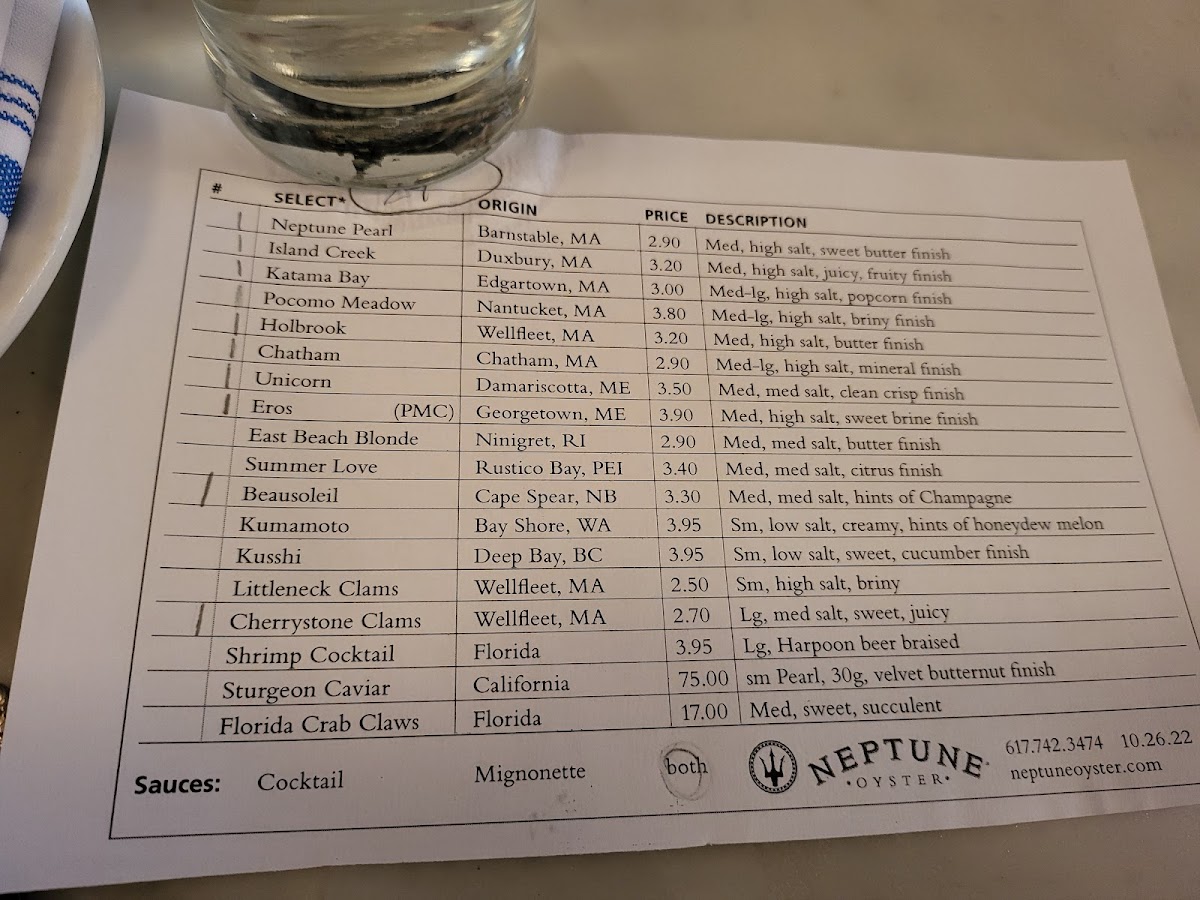 # SELECT* ORIGIN PRICE DESCRIPTION
| Neptune Pearl Barnstable, MA 2.90 Med, high salt, sweet butter finish
| Island Creek Duxbury, MA 3.20 Med, high salt, juicy, fruity finish
| Katama Bay Edgartown, MA 3.00 Med-lg, high salt, popcorn finish
| Pocomo Meadow Nantucket, MA 3.80 Med-lg, high salt, briny finish
| Holbrook Wellfleet, MA 3.20 Med, high salt, butter finish
| Chatham Chatham, MA 2.90 Med-lg, high salt, mineral finish
| Unicorn Damariscotta, ME 3.50 Med, med salt, clean crisp finish
| Eros (PMC) Georgetown, ME 3.90 Med, high salt, sweet brine finish
East Beach Blonde Ninigret, RI 2.90 Med, med salt, butter finish
Summer Love Rustico Bay, PEI 3.40 Med, med salt, citrus finish
| Beausoleil Cape Spear, NB 3.30 Med, med salt, hints of Champagne
Kumamoto Bay Shore, WA 3.95 Sm, low salt, creamy, hints of honeydew melon
Kusshi Deep Bay, BC 3.95 Sm, low salt, sweet, cucumber finish
Littleneck Clams Wellfleet, MA 2.50 Sm, high salt, briny
| Cherrystone Clams Wellfleet, MA 2.70 Lg, med salt, sweet, juicy
Shrimp Cocktail Florida 3.95 Lg, Harpoon beer braised
Sturgeon Caviar California 75.00 sm Pearl, 30g, velvet butternut finish
Florida Crab Claws Florida 17.00 Med, sweet, succulent
Sauces: Cocktail Mignonette both
NEPTUNE
•OYSTER•
617.742.3474 10.26.22
neptuneoyster.com